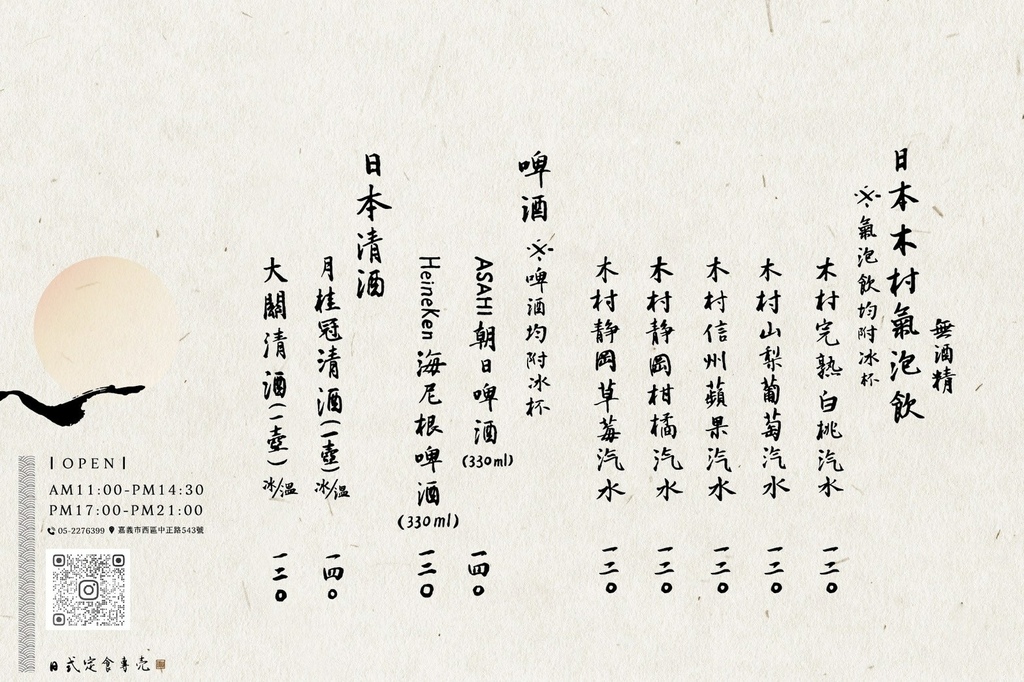 無酒精
日本木村氣泡飲
※氣泡飲均附冰杯
木村完熟白桃汽水 一二〇
木村山梨葡萄汽水 一二〇
木村信州蘋果汽水 一二〇
木村靜岡柑橘汽水 一二〇
木村靜岡草莓汽水 一二〇
啤酒 ※啤酒均附冰杯
ASAHI 朝日啤酒 (330ml) 一四〇
HeineKen 海尼根啤酒 (330ml) 一二〇
日本清酒
月桂冠清酒(一壺) 冰/溫 一四〇
大關清酒(一壺) 冰/溫 一二〇
OPEN
AM11:00-PM14:30
PM17:00-PM21:00
05-2276399 嘉義市西區中正路543號
日式定食專売